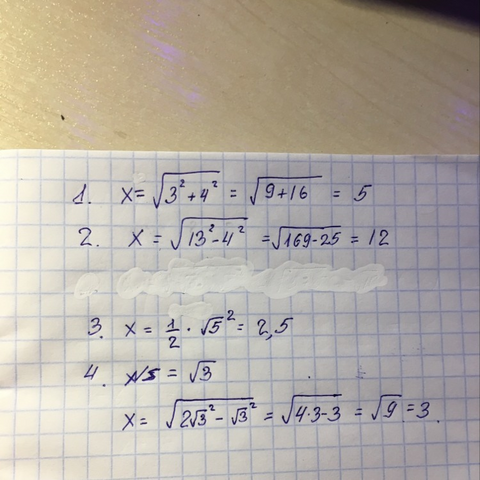 1. x = √(3²+4²) = √(9+16) = 5
2. x = √(13²-4²) = √(169-25) = 12
3. x = 1/2 · √5² = 2,5
4. = √3
x = √(2√3² - √3²) = √(4·3-3) = √9 = 3.